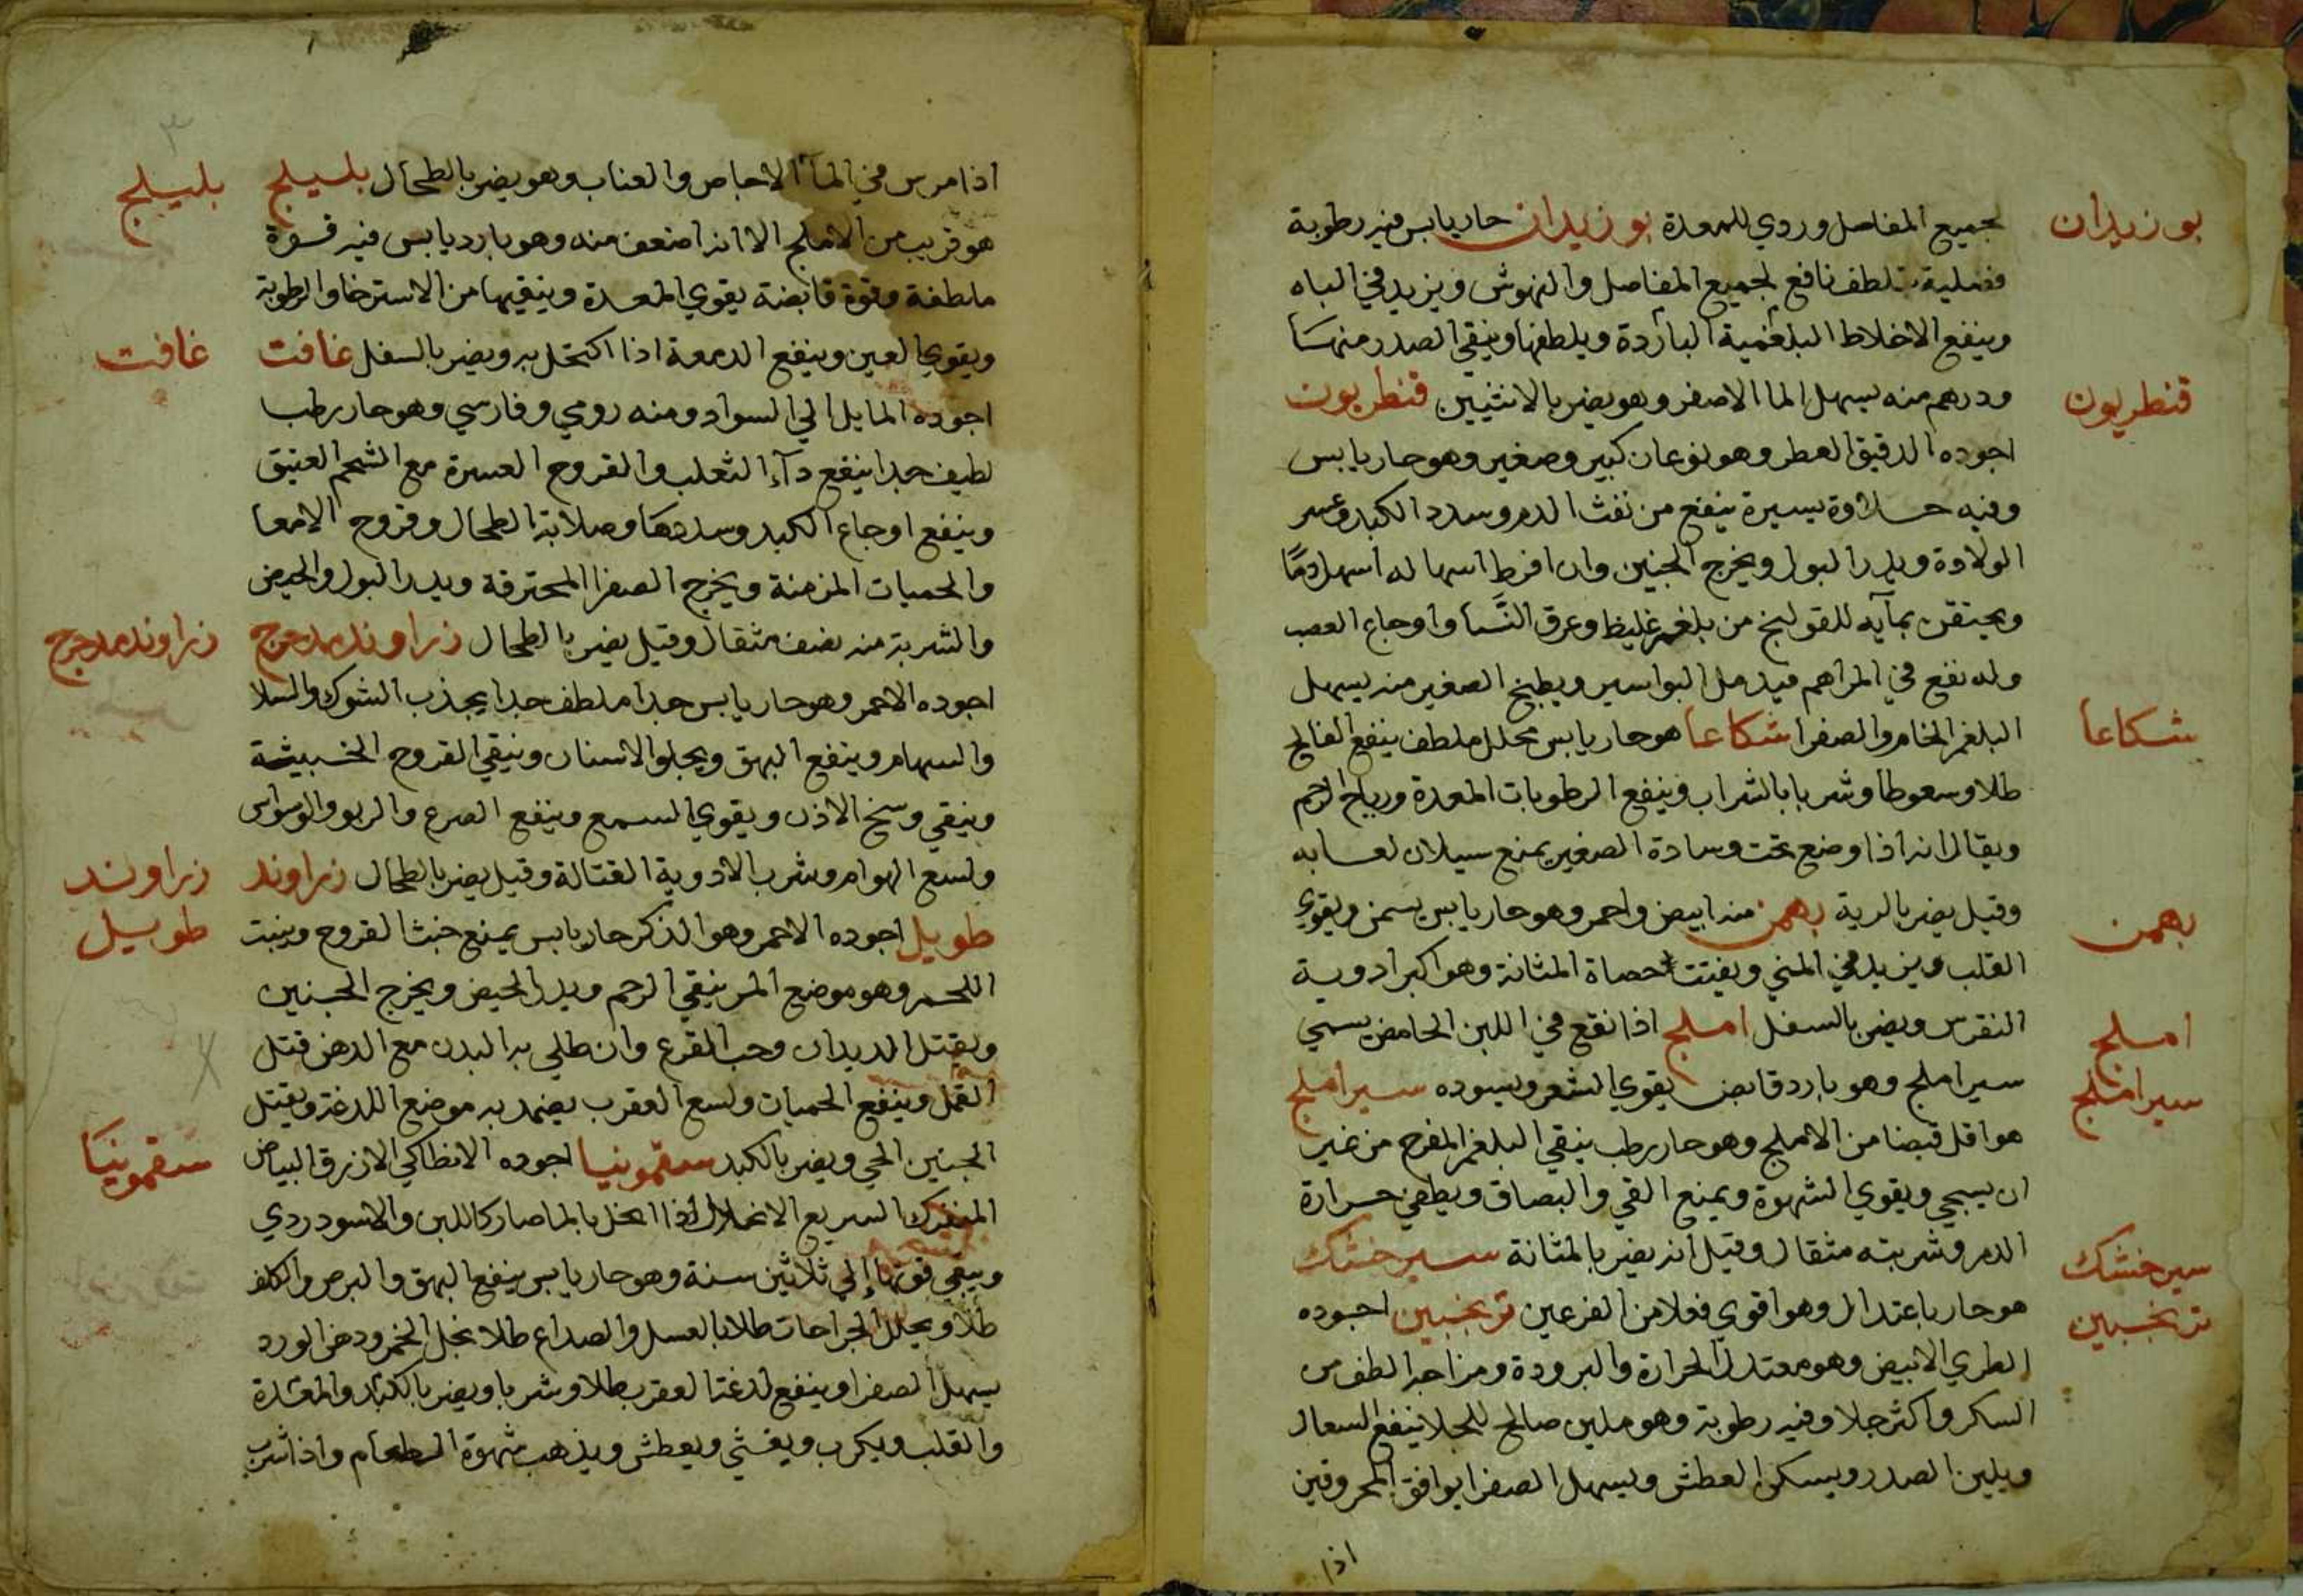 بوزيدان
لجميع المفاصل وردي للمعدة بوزيدان حار يابس فيه رطوبة
فضلية تلطف نافع لجميع المفاصل والنهوش ويزيد في الباه
وينفع الاخلاط البلغمية الباردة ويلطفها وينقي الصدر منها
قنطريون
ودرهم منه يسهل الما الاصفر وهو يضر بالانثيين قنطريون
اجوده الدقيق العطر وهو نوعان كبير وصغير وهو حار يابس
وفيه حلاوة يسيرة ينفع من نفث الدم وسدد الكبد وعسر
الولادة ويدر البول ويخرج الجنين وان افرط اسهاله اسهل دمًا
ويحتقن بمآيه للقولنج من بلغم غليظ وعرق النَّسا واوجاع العصب
وله نفع في المراهم فيدمل البواسير ويطبخ الصغير منه يسهل
شكاعا
البلغم الخام والصفرا شكاعا هو حار يابس محلل ملطف ينفع الفالج
طلا وسعوطا وشربا بالشراب وينفع الرطوبات المعدة ورياح الرحم
ويقال انه اذا وضع تحت وسادة الصغير يمنع سيلان لعابه
بهمن
وقيل يضر بالرية بهمن منه ابيض واحمر وهو حار يابس يسمن ويقوي
القلب ويزيد في المني ويفتت حصاة المثانة وهو اكبر ادوية
املج
النقرس ويضر بالسفل املج اذا نقع في اللبن الحامض يسمي
سيراملج
سيراملج وهو بارد قابض يقوي الشعر ويسوده سيراملج
هو اقل قبضا من الاملج وهو حار رطب ينقي البلغم المفرح من غير
ان يسجي ويقوي الشهوة ويمنع القي والبصاق ويطفي حرارة
سيرخشك
الدم وشربته مثقال وقيل انه يضر بالمثانة سيرخشك
ترنجبين
هو حار باعتدال وهو اقوي فعلا من الفرعين ترنجبين اجوده
الطري الابيض وهو معتدل الحرارة والبرودة ومزاجه الطف من
السكر واكثر جلا وفيه رطوبة وهو ملين صالح للجلا ينفع السعال
ويلين الصدر ويسكن العطش ويسهل الصفرا يوافق المحروقين
اذا
بليلج
اذا مرس في المآ الاجاص والعناب وهو يضر بالطحال بليلج
هو قريب من الاملج الا انه اضعف منه وهو بارد يابس فيه قوة
ملطفة وقوة قابضة يقوي المعدة وينقيها من الاسترخا والرطوبة
غافت
ويقوي العين وينفع الدمعة اذا اكتحل به ويضر بالسفل غافت
اجوده المايل الي السواد ومنه رومي وفارسي وهو حار رطب
لطيف جدا ينفع دآء الثعلب والقروح العسرة مع الشحم العتيق
وينفع اوجاع الكبد وسددها وصلابة الطحال وقروح الامعا
والحميات المزمنة ويخرج الصفرا المحترقة ويدر البول والحيض
زراوند مدحرج
والشربة منه نصف مثقال وقيل يضر بالطحال زراوند مدحرج
اجوده الاحمر وهو حار يابس جدا ملطف جدا يجذب الشوك والسلا
والسهام وينفع البهق ويجلو الاسنان وينقي القروح الخبيثة
وينقي وسخ الاذن ويقوي السمع وينفع الصرع والربو والوسواس
زراوند
ولسع الهوام وشرب الادوية القتالة وقيل يضر بالطحال زراوند
طويل
طويل اجوده الاحمر وهو الذكر حار يابس يمنع خبث القروح وينبت
اللحم وهو موضع المر ينقي الرحم ويدر الحيض ويخرج الجنين
ويقتل الديدان وحب القرع وان طلي به البدن مع الدهن قتل
القمل وينفع الحميات ولسع العقرب يضمد به موضع اللدغة ويقتل
سقمونيَا
الجنين الحي ويضر بالكبد سقمونيا اجوده الانطاكي الازرق البياض
المنفرك السريع الانحلال اذا انحل بالما صار كاللبن والاسود ردي
ويبقي قوتها إلي ثلاثين سنة وهو حار يابس ينفع البهق والبرص والكلف
طلا ويحلل الجراحات طلا بالعسل والصداع طلا بخل الخمر ودهن الورد
يسهل الصفرا وينفع لدغة العقرب طلا وشربا ويضر بالكبد والمعدة
والقلب ويكرب ويغثي ويعطش ويذهب شهوة الطعام واذا شرب